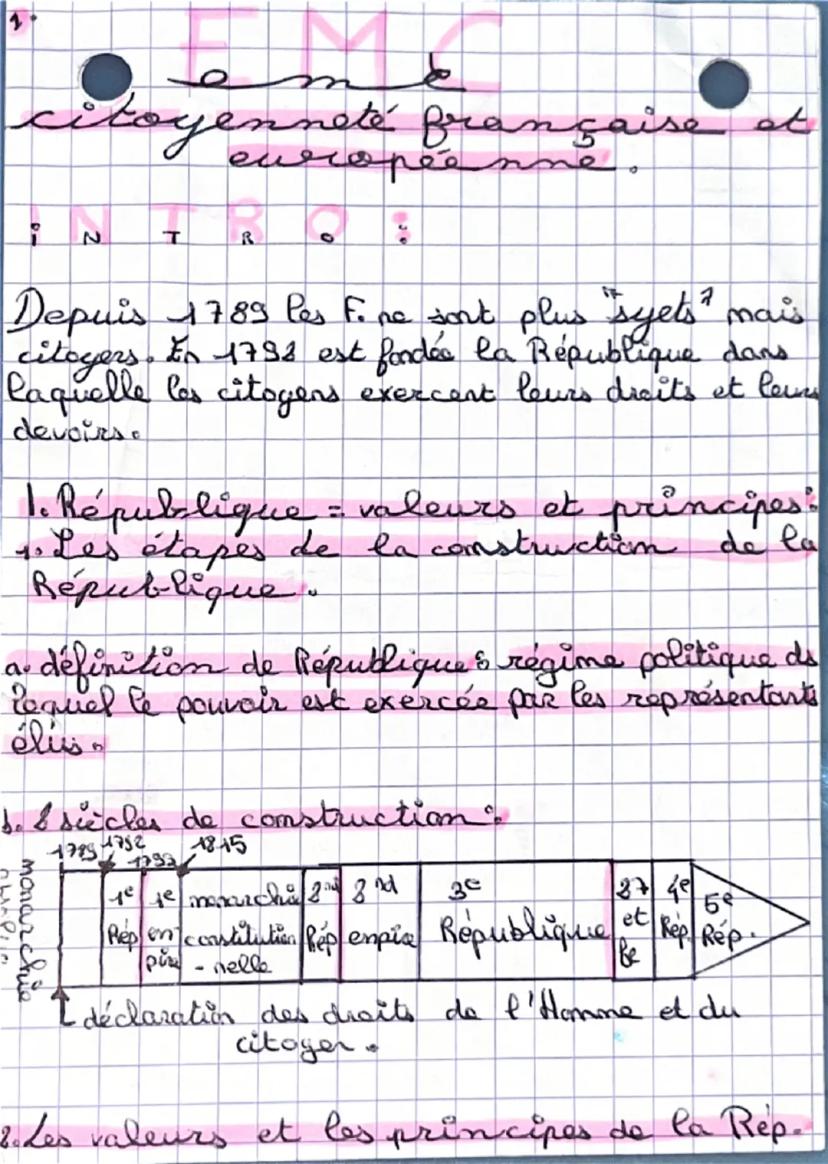 1.
EMC
emc
citoyenneté française et
européenne.
INTRO:
Depuis 1789 les F. ne sont plus "sujets" mais
citoyens. En 1792 est fondée la République dans
laquelle les citoyens exercent leurs droits et leurs
devoirs.
1. République = valeurs et principes:
1. Les étapes de la construction de la
République.
a. définition de République: régime politique ds
lequel le pouvoir est exercée par les représentants
élus.
b. 2 siècles de construction:
1789 1792 1815
monarchie
1e Rép
1e empire
monarchie constitution-nelle
2nd Rép
2nd empire
3e République
et
4e Rép.
5e Rép.
déclaration des droits de l'Homme et du
citoyen.
2. Les valeurs et les principes de la Rép.